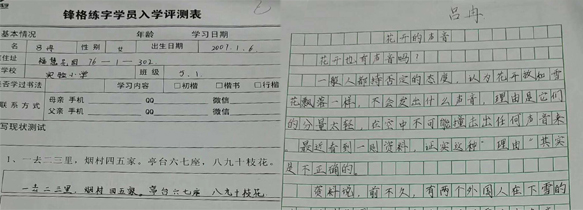 锋格练字学员入学评测表
基本情况 年龄 学习日期
名 吕冉 性别 女 出生日期 2007.1.6.
住址 福慧花园 76-1-302
学校 实验小学 班级 5.1.
是否学过书法 学习内容 □初楷 □楷书 □行楷
联系方式 母亲 手机 QQ 微信
父亲 手机 QQ 微信
写现状测试
1、一去二三里，烟村四五家。亭台六七座，八九十枝花。
一去二三里，烟村四五家。亭台六七座 八九十枝花
吕冉
花开的声音
花开也有声音吗？
一般人都持否定的态度，认为花开就如雪
花飘落一样，不会发出什么声音，理由是它们
的分量太轻，在空中不可能撞击出任何声音来
最近看到一则资料，证实这种“理由”其实
是不正确的。
资料说，前不久，有两个外国人在下雪的